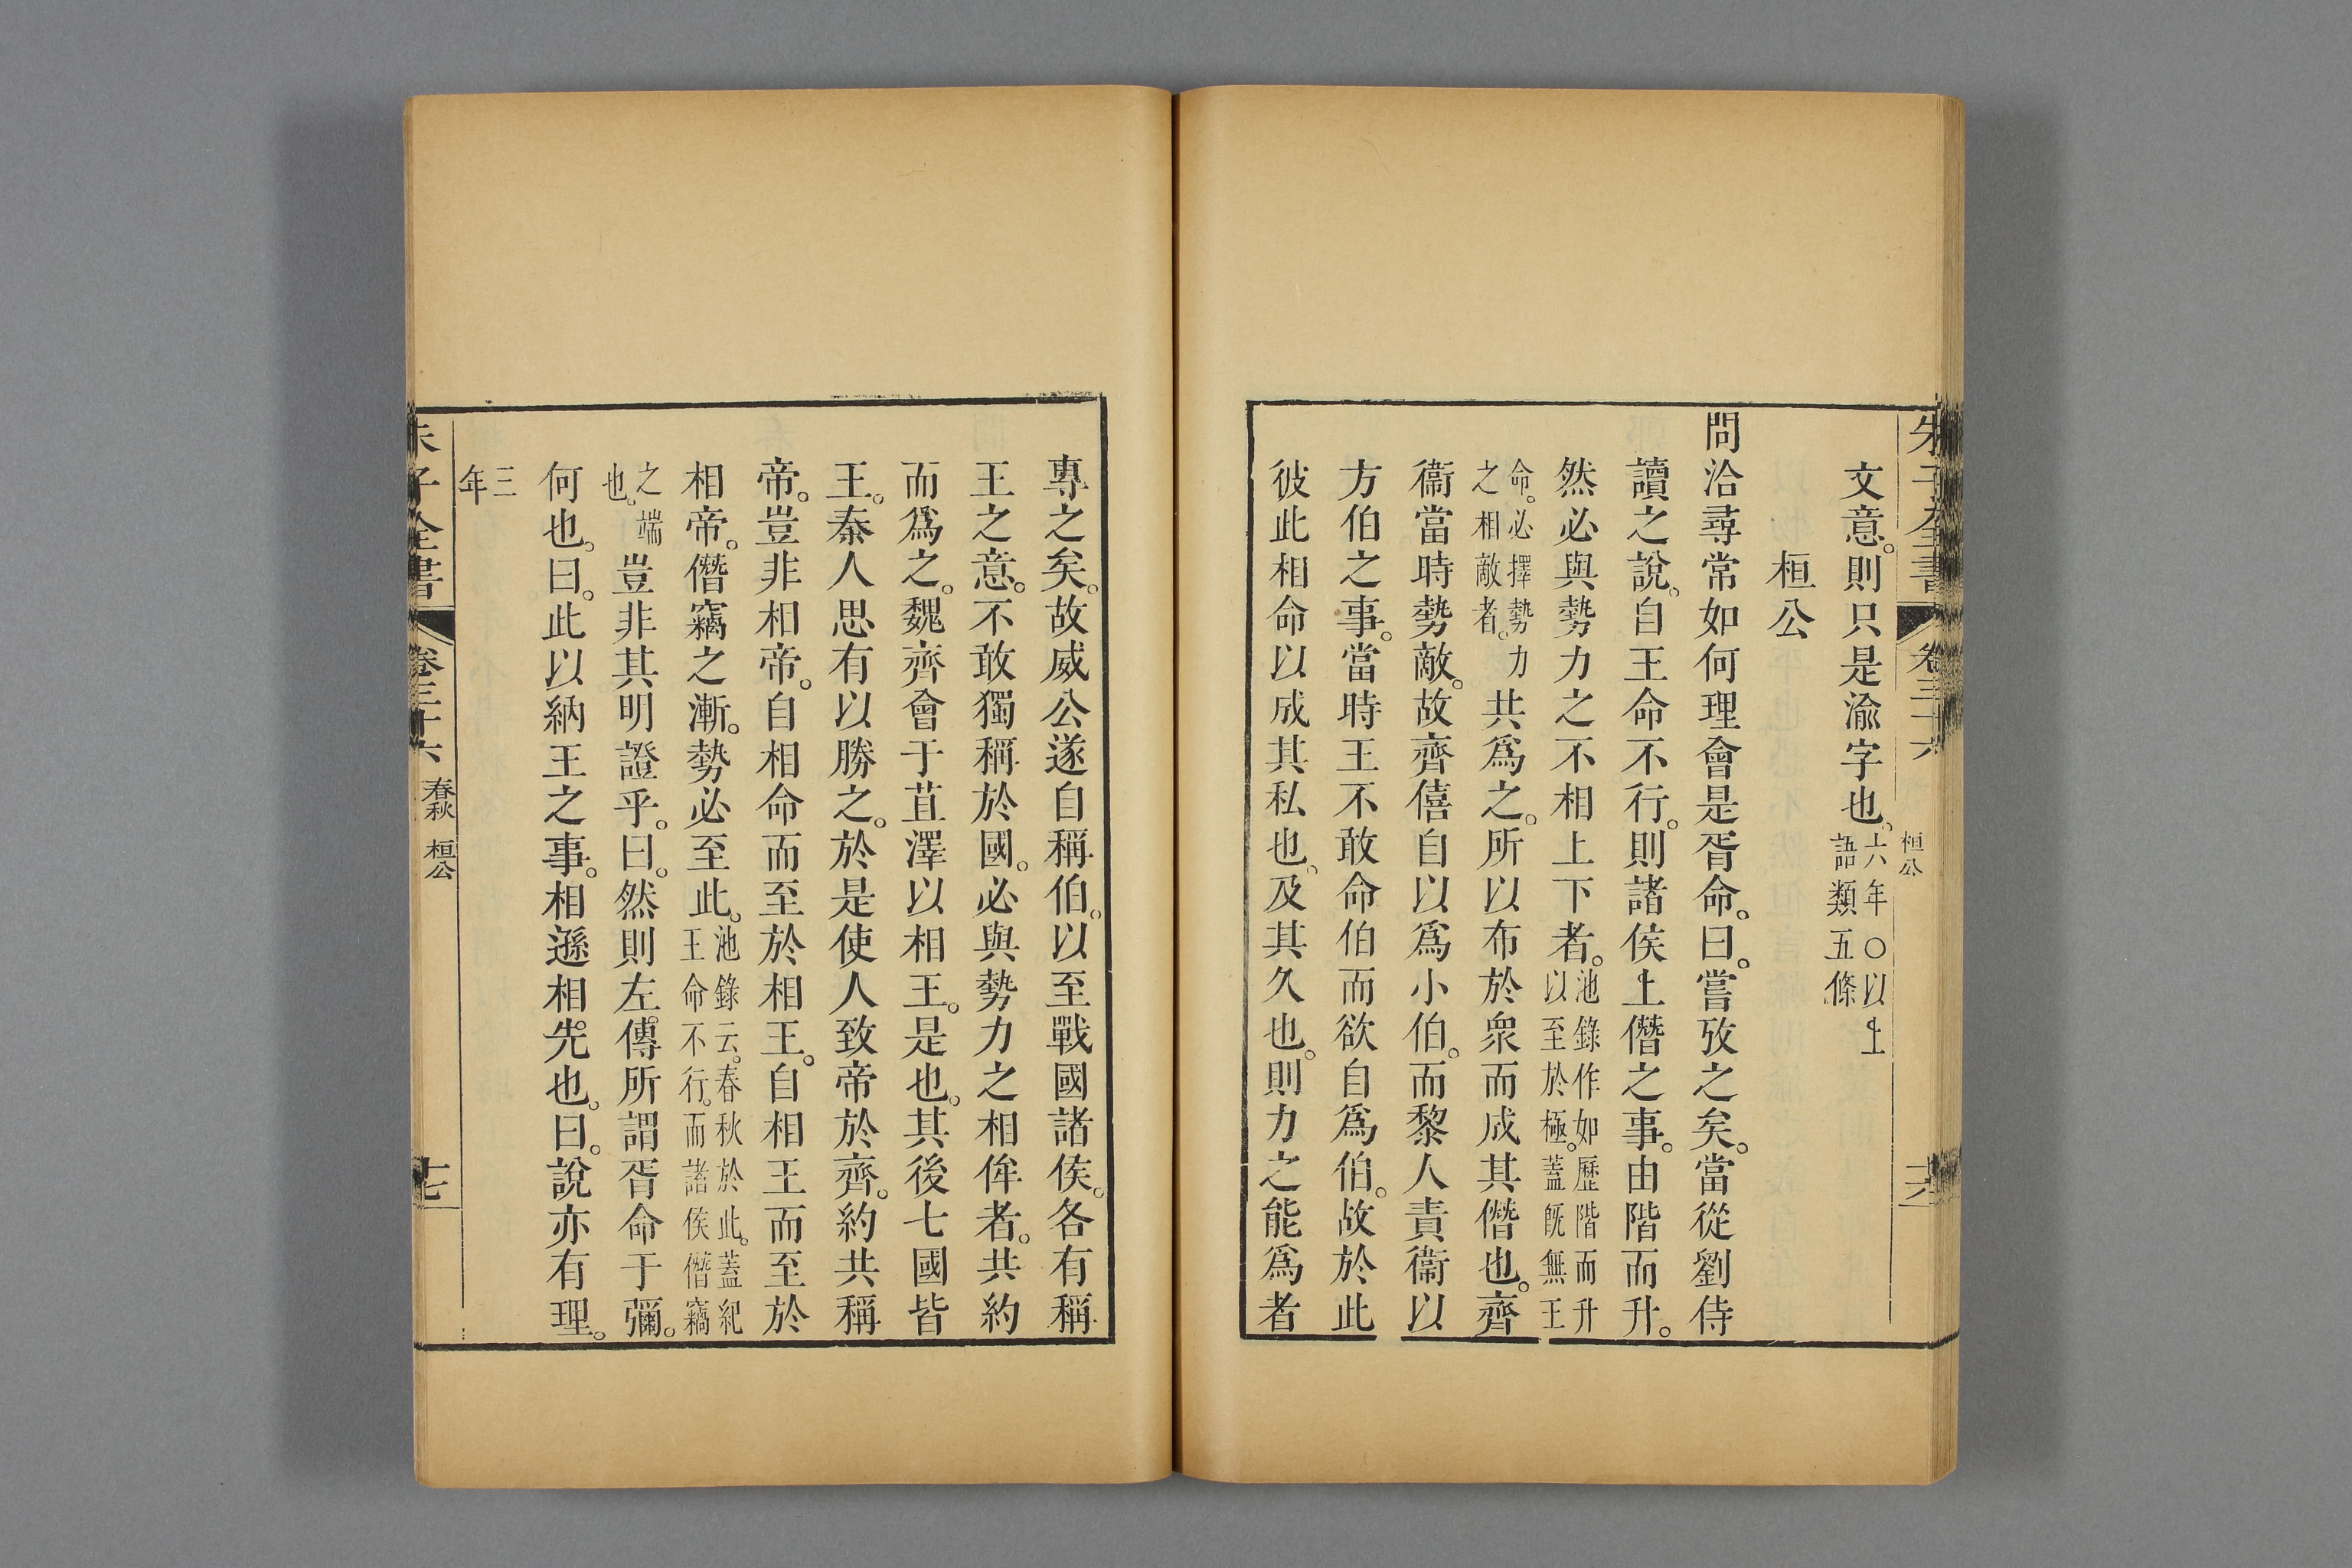 朱子全書 卷三十六 桓公 十六
文意。則只是渝字也。六年○以上語類五條
桓公
問洽尋常如何理會是胥命。曰。嘗攷之矣。當從劉侍
讀之說。自王命不行。則諸侯上僭之事。由階而升。
然必與勢力之不相上下者。池錄作如歷階而升以至於極。蓋既無王
命。必擇勢力之相敵者。共爲之。所以布於眾而成其僭也。齊
衞當時勢敵。故齊僖自以爲小伯。而黎人責衞以
方伯之事。當時王不敢命伯而欲自爲伯。故於此
彼此相命以成其私也。及其久也。則力之能爲者
專之矣。故威公遂自稱伯。以至戰國諸侯。各有稱
王之意。不敢獨稱於國。必與勢力之相侔者。共約
而爲之。魏齊會于苴澤以相王。是也。其後七國皆
王。秦人思有以勝之。於是使人致帝於齊。約共稱
帝。豈非相帝。自相命而至於相王。自相王而至於
相帝。僭竊之漸。勢必至此。池錄云。春秋於此。蓋紀王命不行。而諸侯僭竊
之端也。豈非其明證乎。曰。然則左傳所謂胥命于彌。
何也。曰。此以納王之事。相遜相先也。曰。說亦有理。
三年
朱子全書 卷三十六 春秋 桓公 十七